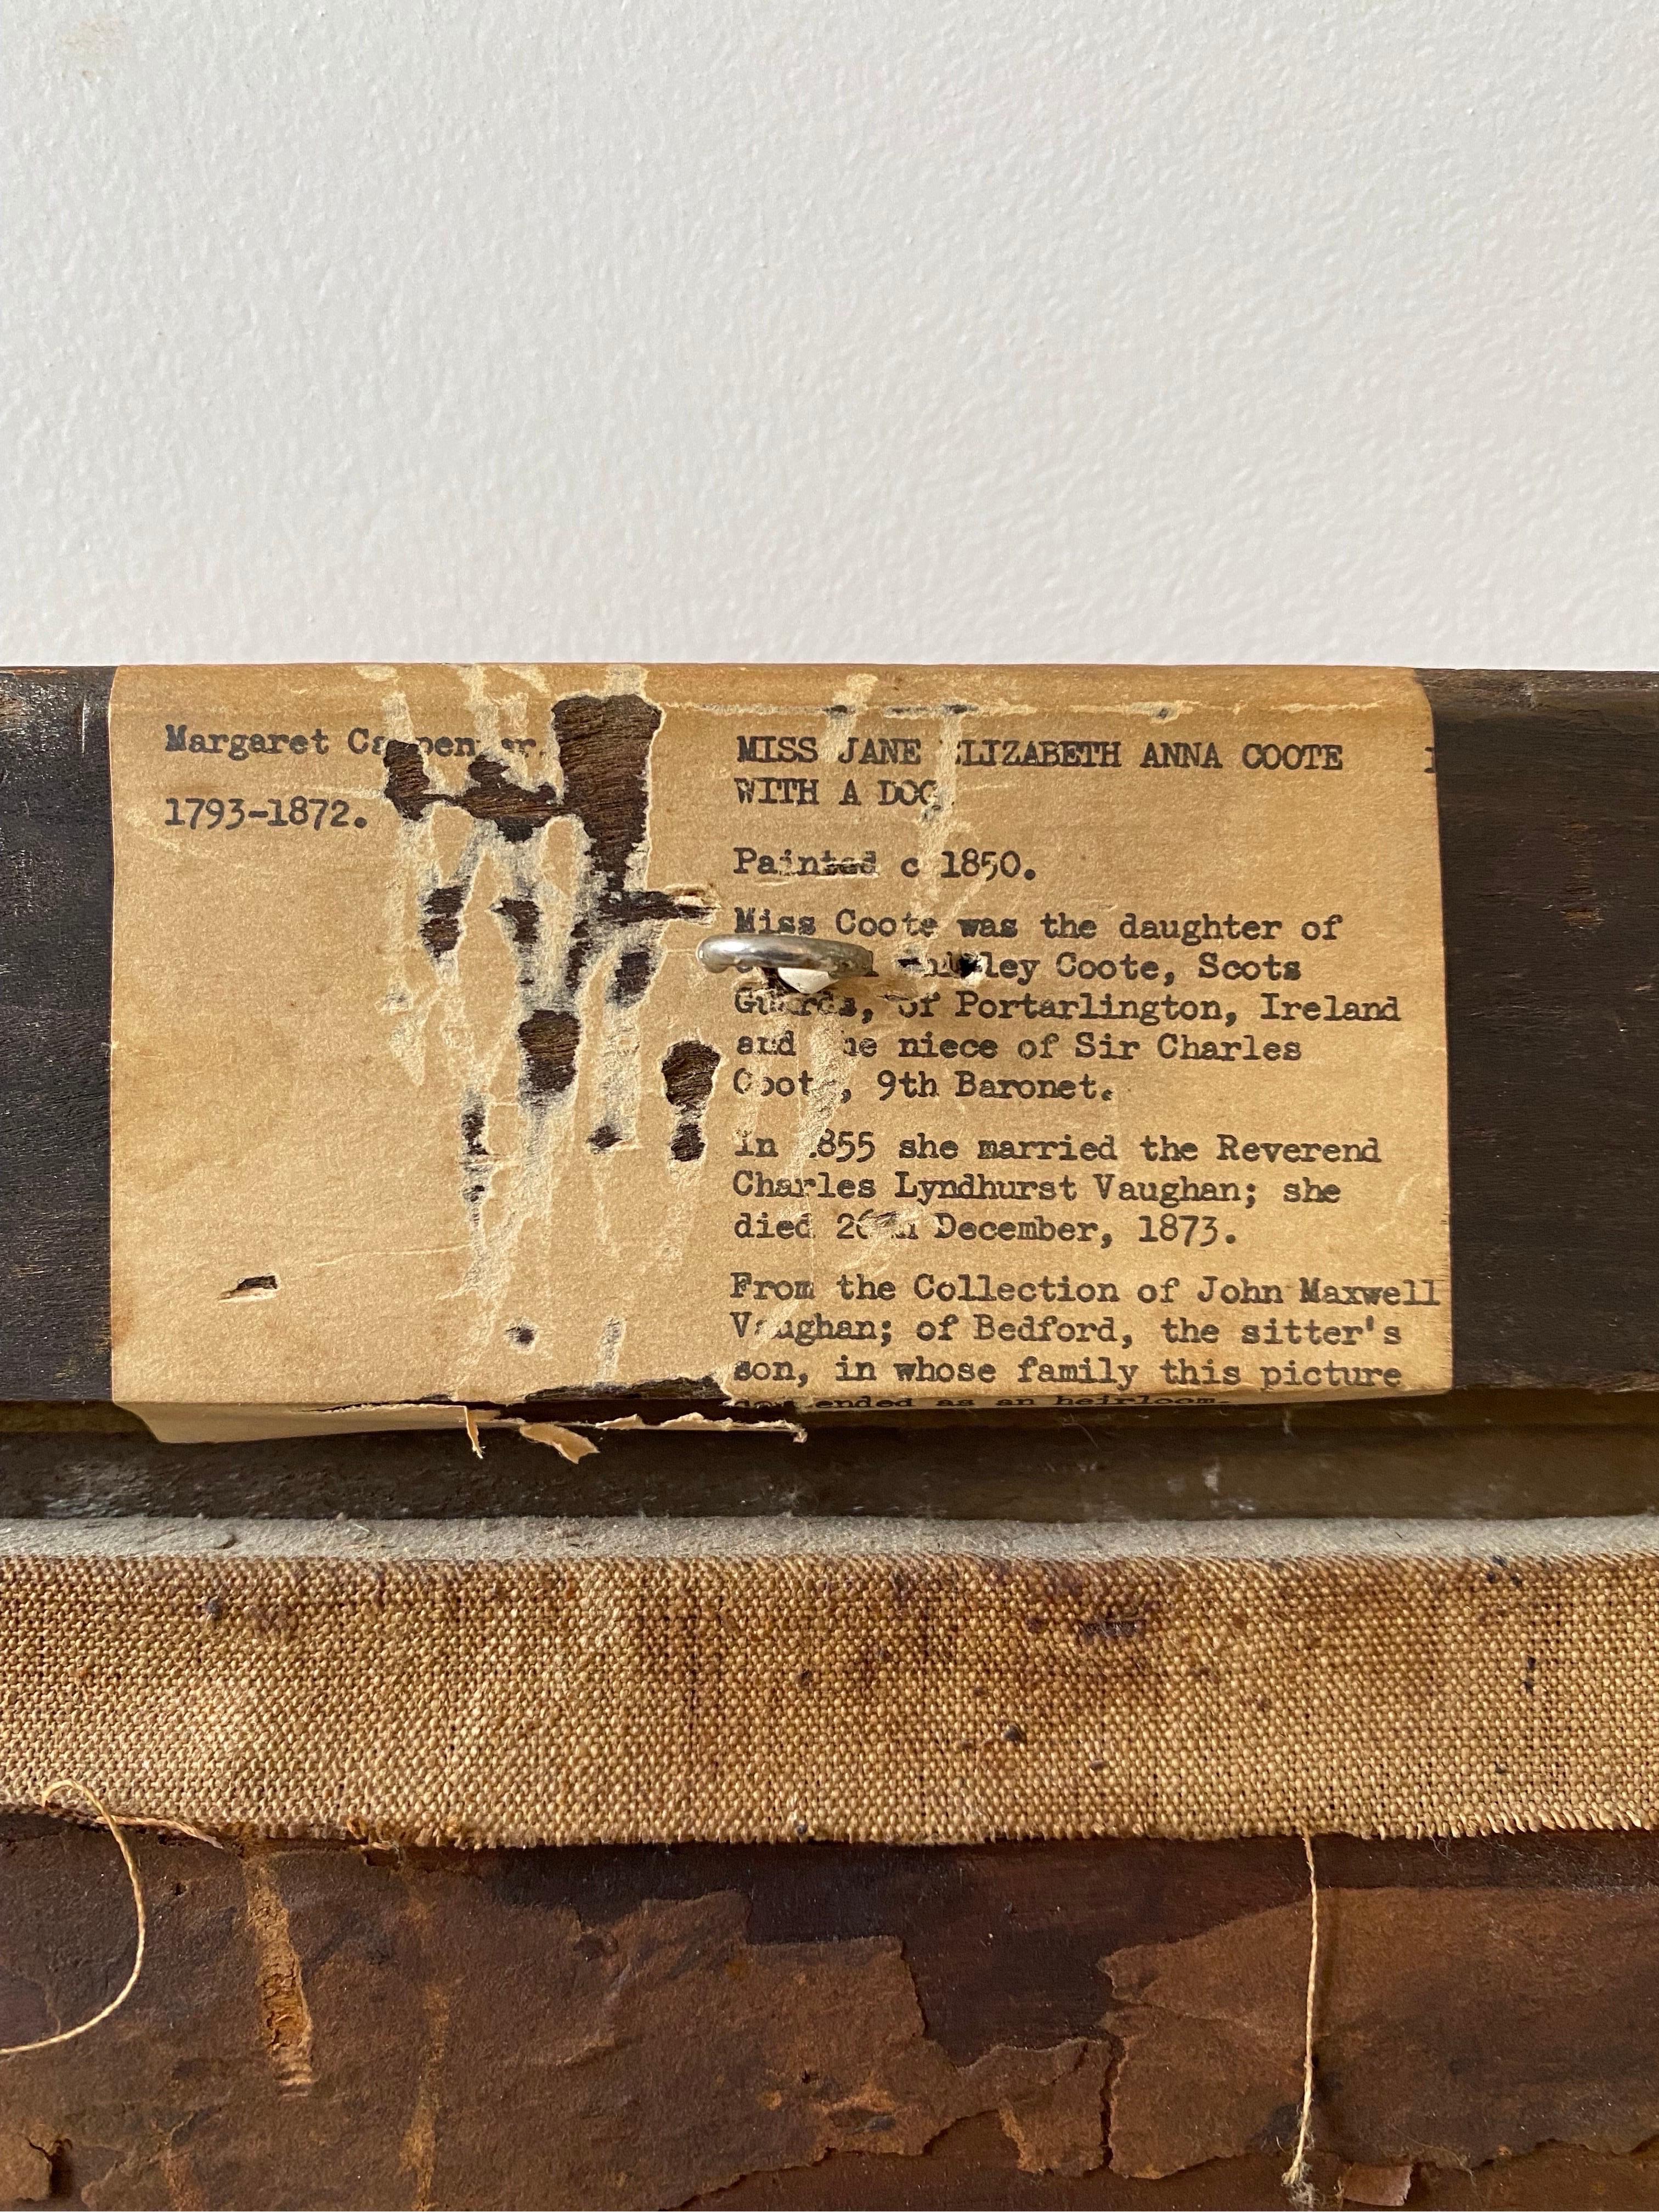 Margaret Carpenter.
1793-1872.
MISS JANE ELIZABETH ANNA COOTE
WITH A DOG.
Painted c 1850.
Miss Coote was the daughter of
Coote, Scots
Guards, of Portarlington, Ireland
and the niece of Sir Charles
Coote, 9th Baronet.
In 1855 she married the Reverend
Charles Lyndhurst Vaughan; she
died December, 1873.
From the Collection of John Maxwell
Vaughan; of Bedford, the sitter's
son, in whose family this picture
descended as an heirloom.